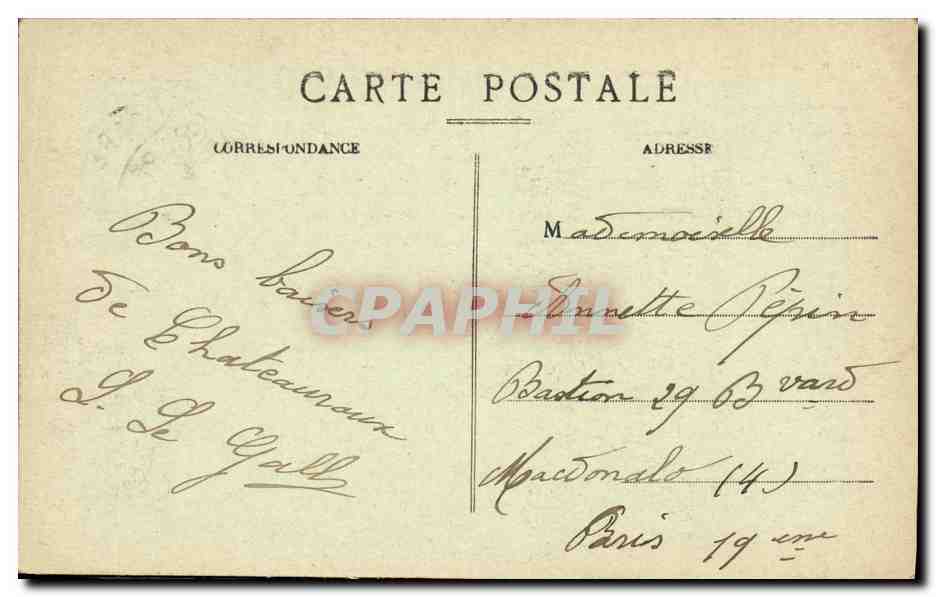 CARTE POSTALE
CORRESPONDANCE
ADRESSE
Bons baisers
de Chateauroux
L. Le Gall
Mademoiselle
Annette Pépin
Bastion 29 Bvard
Macdonald (4)
Paris 19eme
CPAPHIL